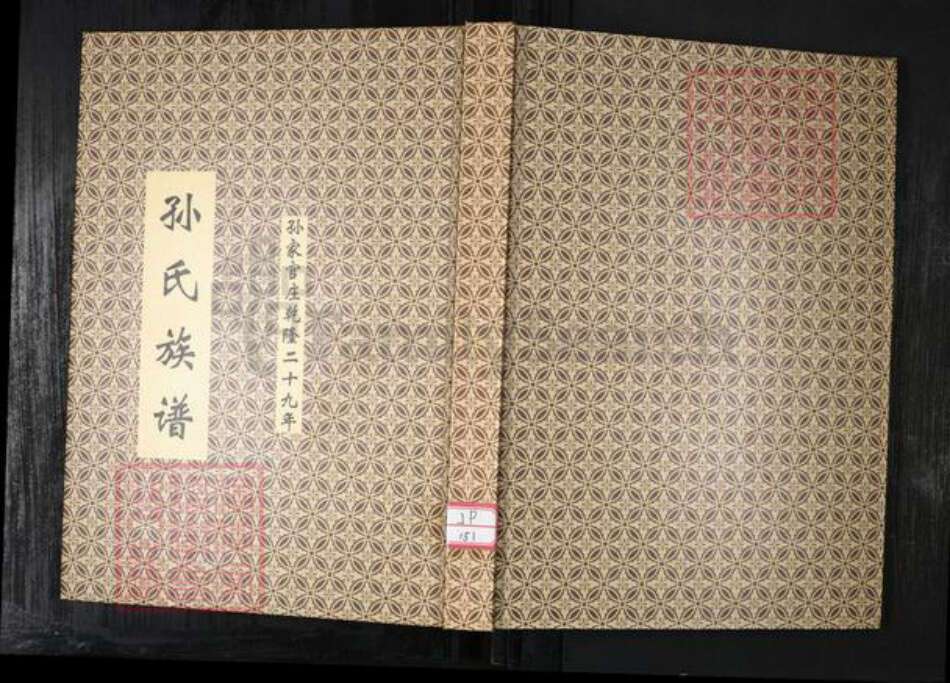 孙氏族谱
孙家官庄乾隆二十九年
JP
151